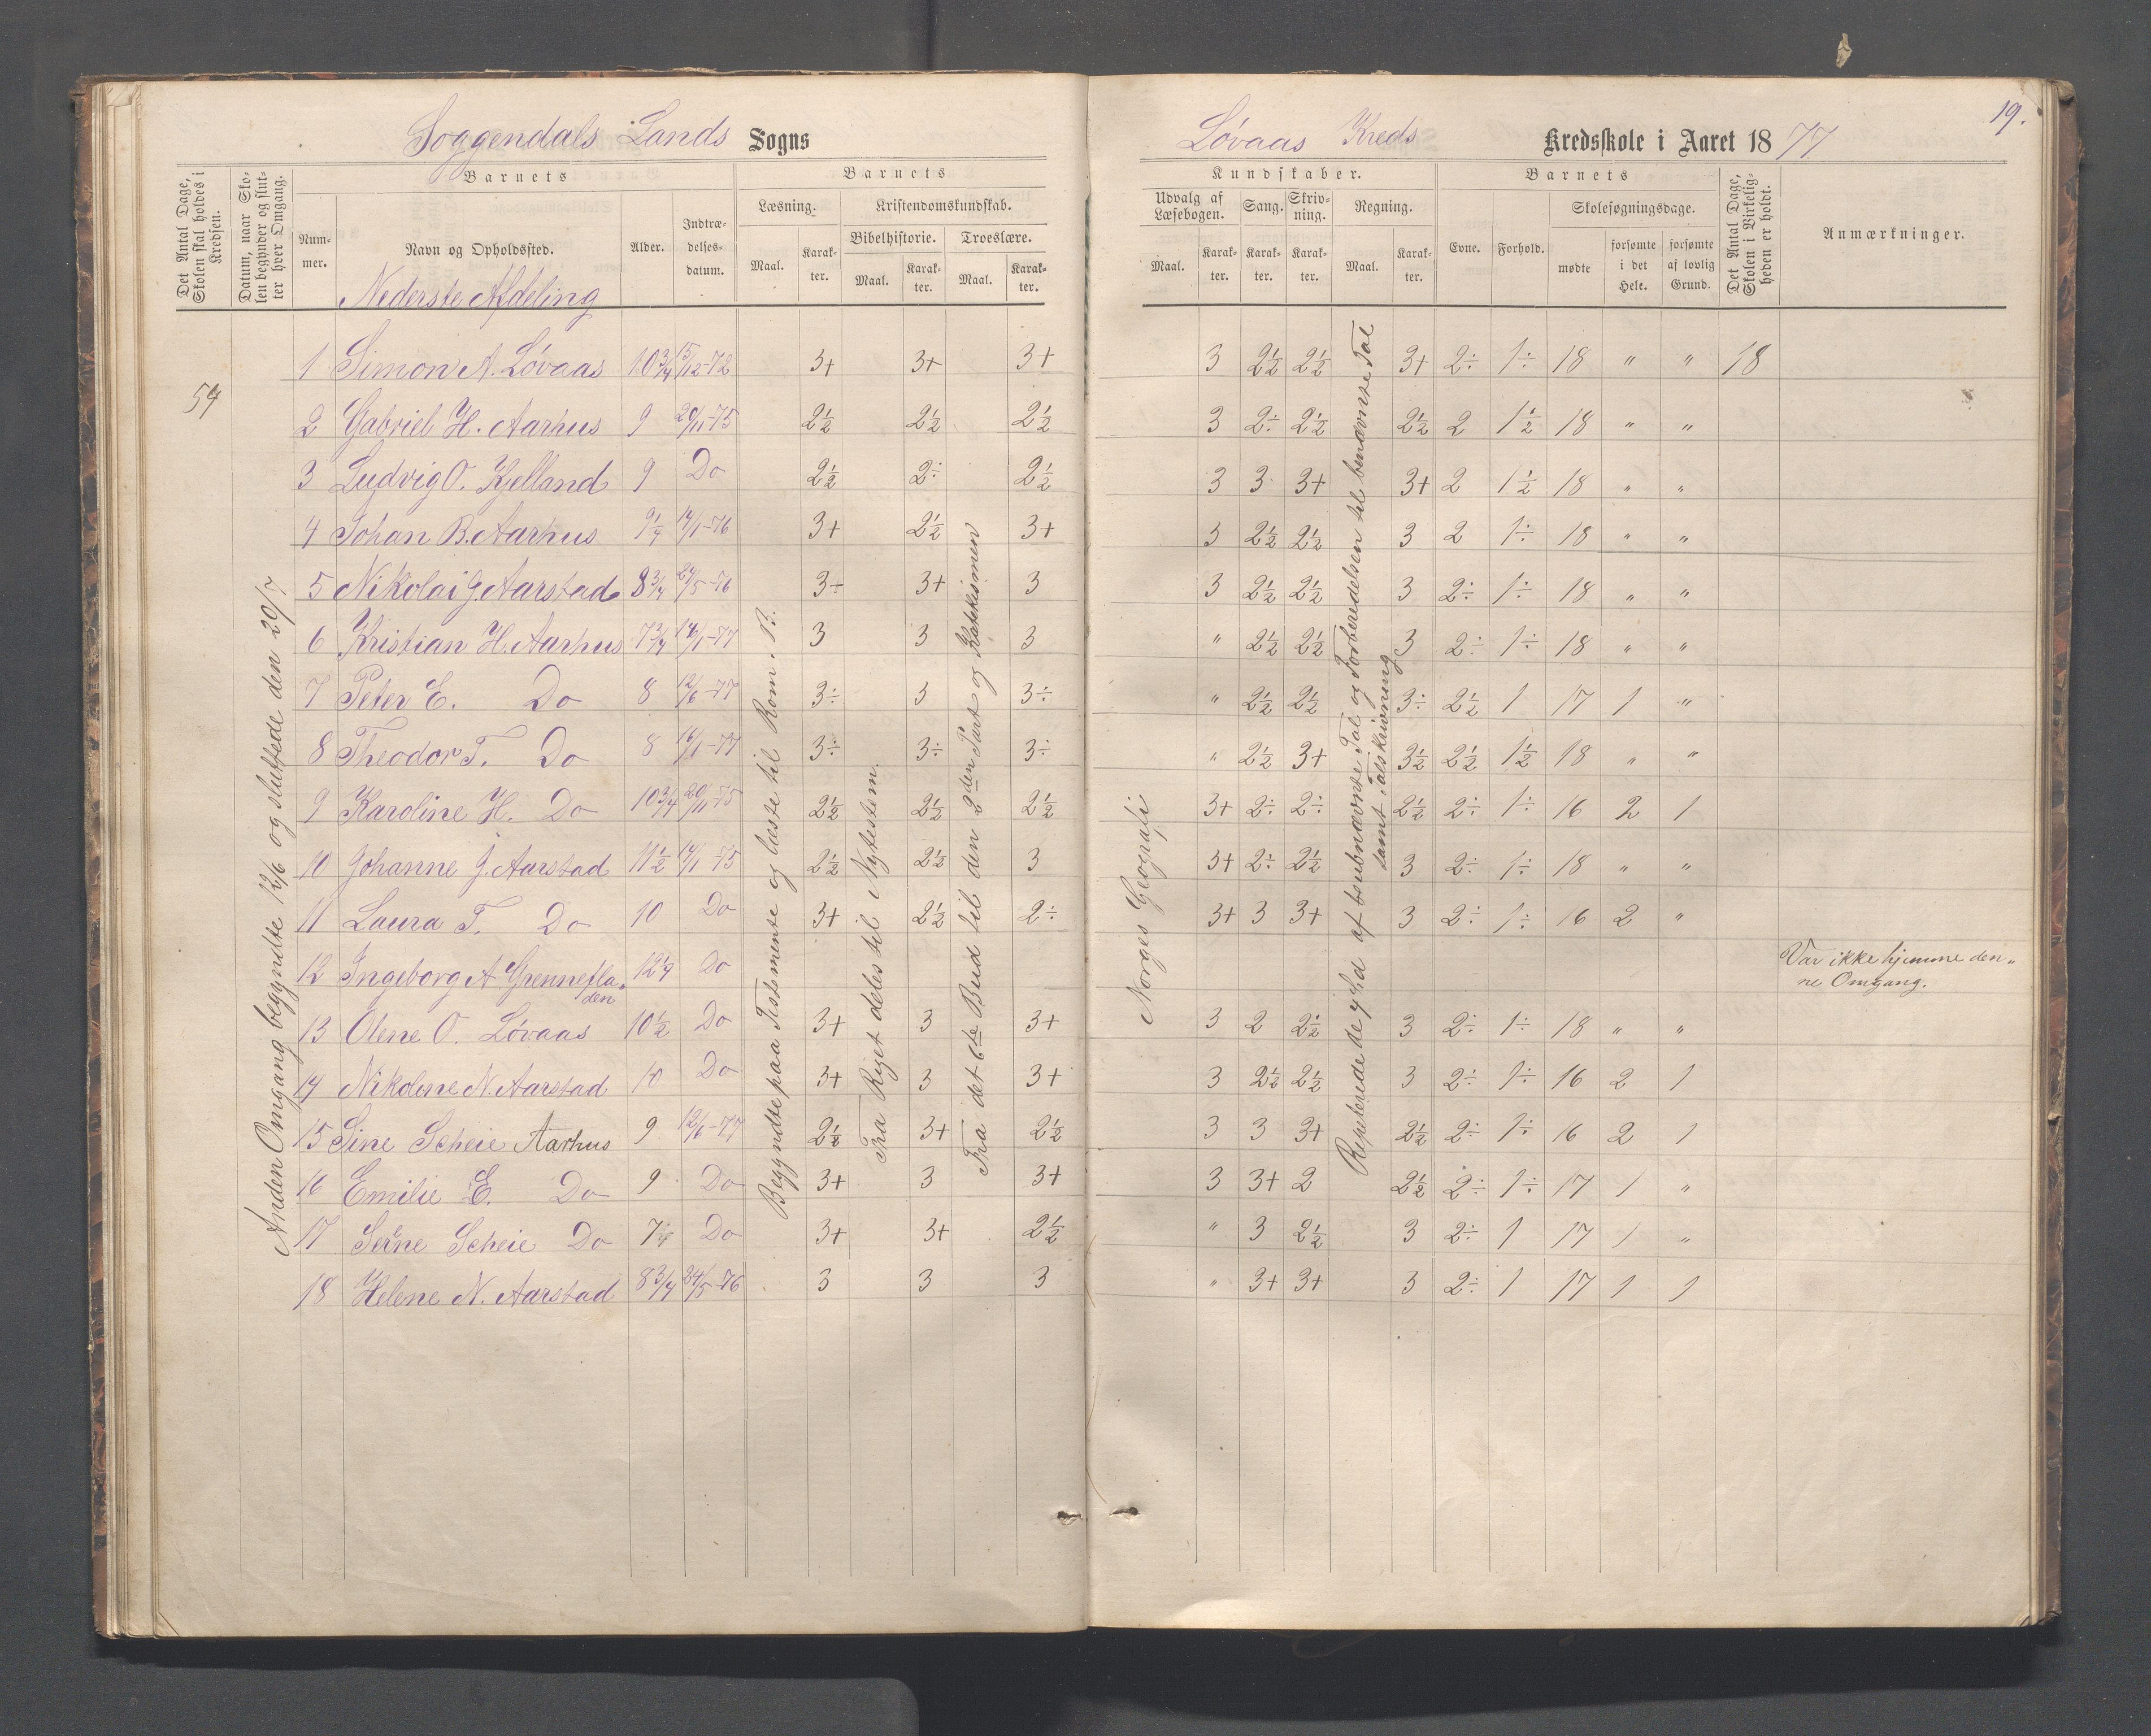 19.
Soggendals Lands Sogns
Løvaas Kreds Kredsskole i Aaret 1877
Det Antal Dage, Skolen skal holdes i Kredsen.
Datum, naar Skolen begynder og slutter hver Omgang.
Barnets
Nummer.
Navn og Opholdssted.
Alder.
Indtrædelsesdatum.
Barnets
Læsning.
Maal.
Karakter.
Kristendomskundskab.
Bibelhistorie.
Maal.
Karakter.
Troeslære.
Maal.
Karakter.
Kundskaber.
Udvalg af Læsebogen.
Maal.
Karakter.
Sang.
Karakter.
Skrivning.
Karakter.
Regning.
Maal.
Karakter.
Barnets
Evne.
Forhold.
Skolesøgningsdage.
mødte
forsømte i det Hele.
forsømte af lovlig Grund.
Det Antal Dage, Skolen i Virkeligheden er holdt.
Anmærkninger.
Nederste Afdeling
54
Anden Omgang begyndte 12/6 og sluttede den 20/7
Begyndte paa Testamente og læste til Rom. B.
Fra Riget deles til Nytestem.
Fra det 6te Bud til den 2den Part og Katekismen
Norges Geografi
Repeterede de 4 Sd af ubenævnte Tal og Forberedelsen til benævnte Tal
samt Talskrivning
1 Simon A. Løvaas 10 3/4 15/12-72 3+ 3+ 3+ 3 2½ 2½ 3+ 2÷ 1÷ 18 " " 18
2 Gabriel H. Aarhus 9 20/11-75 2½ 2½ 2½ 3 2÷ 2½ 2½ 2 1½ 18 " "
3 Ludvig O. Kjelland 9 Do 2½ 2÷ 2½ 3 3 3+ 3+ 2 1½ 18 " "
4 Johan B. Aarhus 9¼ 14/1-76 3+ 2½ 3+ 3 2½ 2½ 3 2 1÷ 18 " "
5 Nikolai J. Aarstad 8 3/4 24/5-76 3÷ 3+ 3 3 2½ 2½ 3 2÷ 1÷ 18 " "
6 Kristian H. Aarhus 7 3/4 16/1-77 3 3 3 " 2½ 2½ 3 2÷ 1÷ 18 " "
7 Peter E. Do 8 12/6-77 3÷ 3 3÷ " 2½ 2½ 3÷ 2½ 1 17 1 "
8 Theodor T. Do 8 16/1-77 3÷ 3÷ 3÷ " 2½ 3+ 3½ 2½ 1½ 18 " "
9 Karoline H. Do 10 3/4 20/11-75 2½ 2½ 2½ 3+ 2÷ 2÷ 2½ 2÷ 1÷ 16 2 1
10 Johanne J. Aarstad 11½ 14/1-75 2½ 2½ 3 3+ 2÷ 2½ 3 2÷ 1÷ 18 " "
11 Laura T. Do 10 Do 3+ 2½ 2÷ 3+ 3 3+ 3 2÷ 1÷ 16 2 "
12 Ingeborg A Grennefladen 12¼ Do Var ikke hjemme den„
ne Omgang.
13 Olene O. Løvaas 10½ Do 3+ 3 3+ 3 2 2½ 3 2÷ 1÷ 18 " "
14 Nikoline N. Aarstad 10 Do 3+ 3 3+ 3 2½ 2½ 3 2÷ 1÷ 16 2 1
15 Sine Scheie Aarhus 9 12/6-77 2½ 3+ 2½ 3 3 3+ 2½ 2÷ 1÷ 16 2 1
16 Emilie E. Do 9 Do 3+ 3 3+ 3 3+ 2 2½ 2÷ 1÷ 17 1 "
17 Serine Scheie Do 7 Do 3+ 3+ 2½ " 3 2½ 3 2÷ 1 17 1 "
18 Helene N. Aarstad 8 3/4 24/5-76 3 3 3 " 3+ 3+ 3 2÷ 1 17 1 1